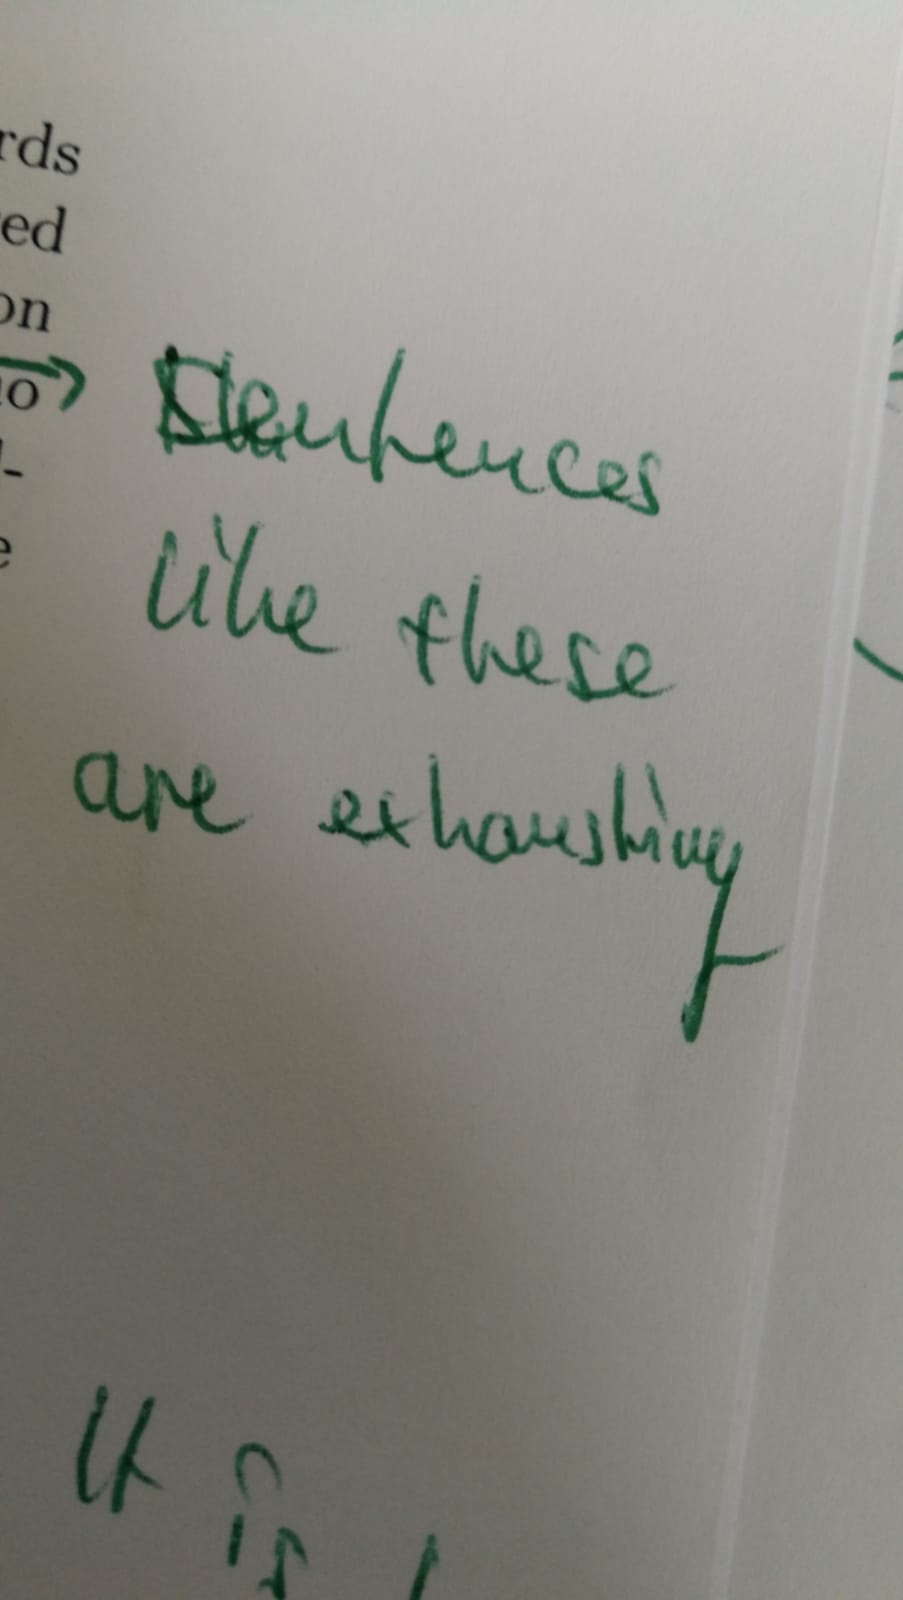 rds
ed
on
Sentences
like these
are exhausting
It is